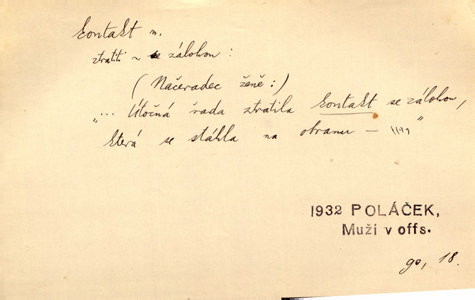 kontakt m.
ztratiti ~ se zálohou :
( Načeradec ženě : )
„... Útočná řada ztratila kontakt se zálohou,
která se stáhla na obranu —
1932 POLÁČEK,
Muži v offs.
90, 18.